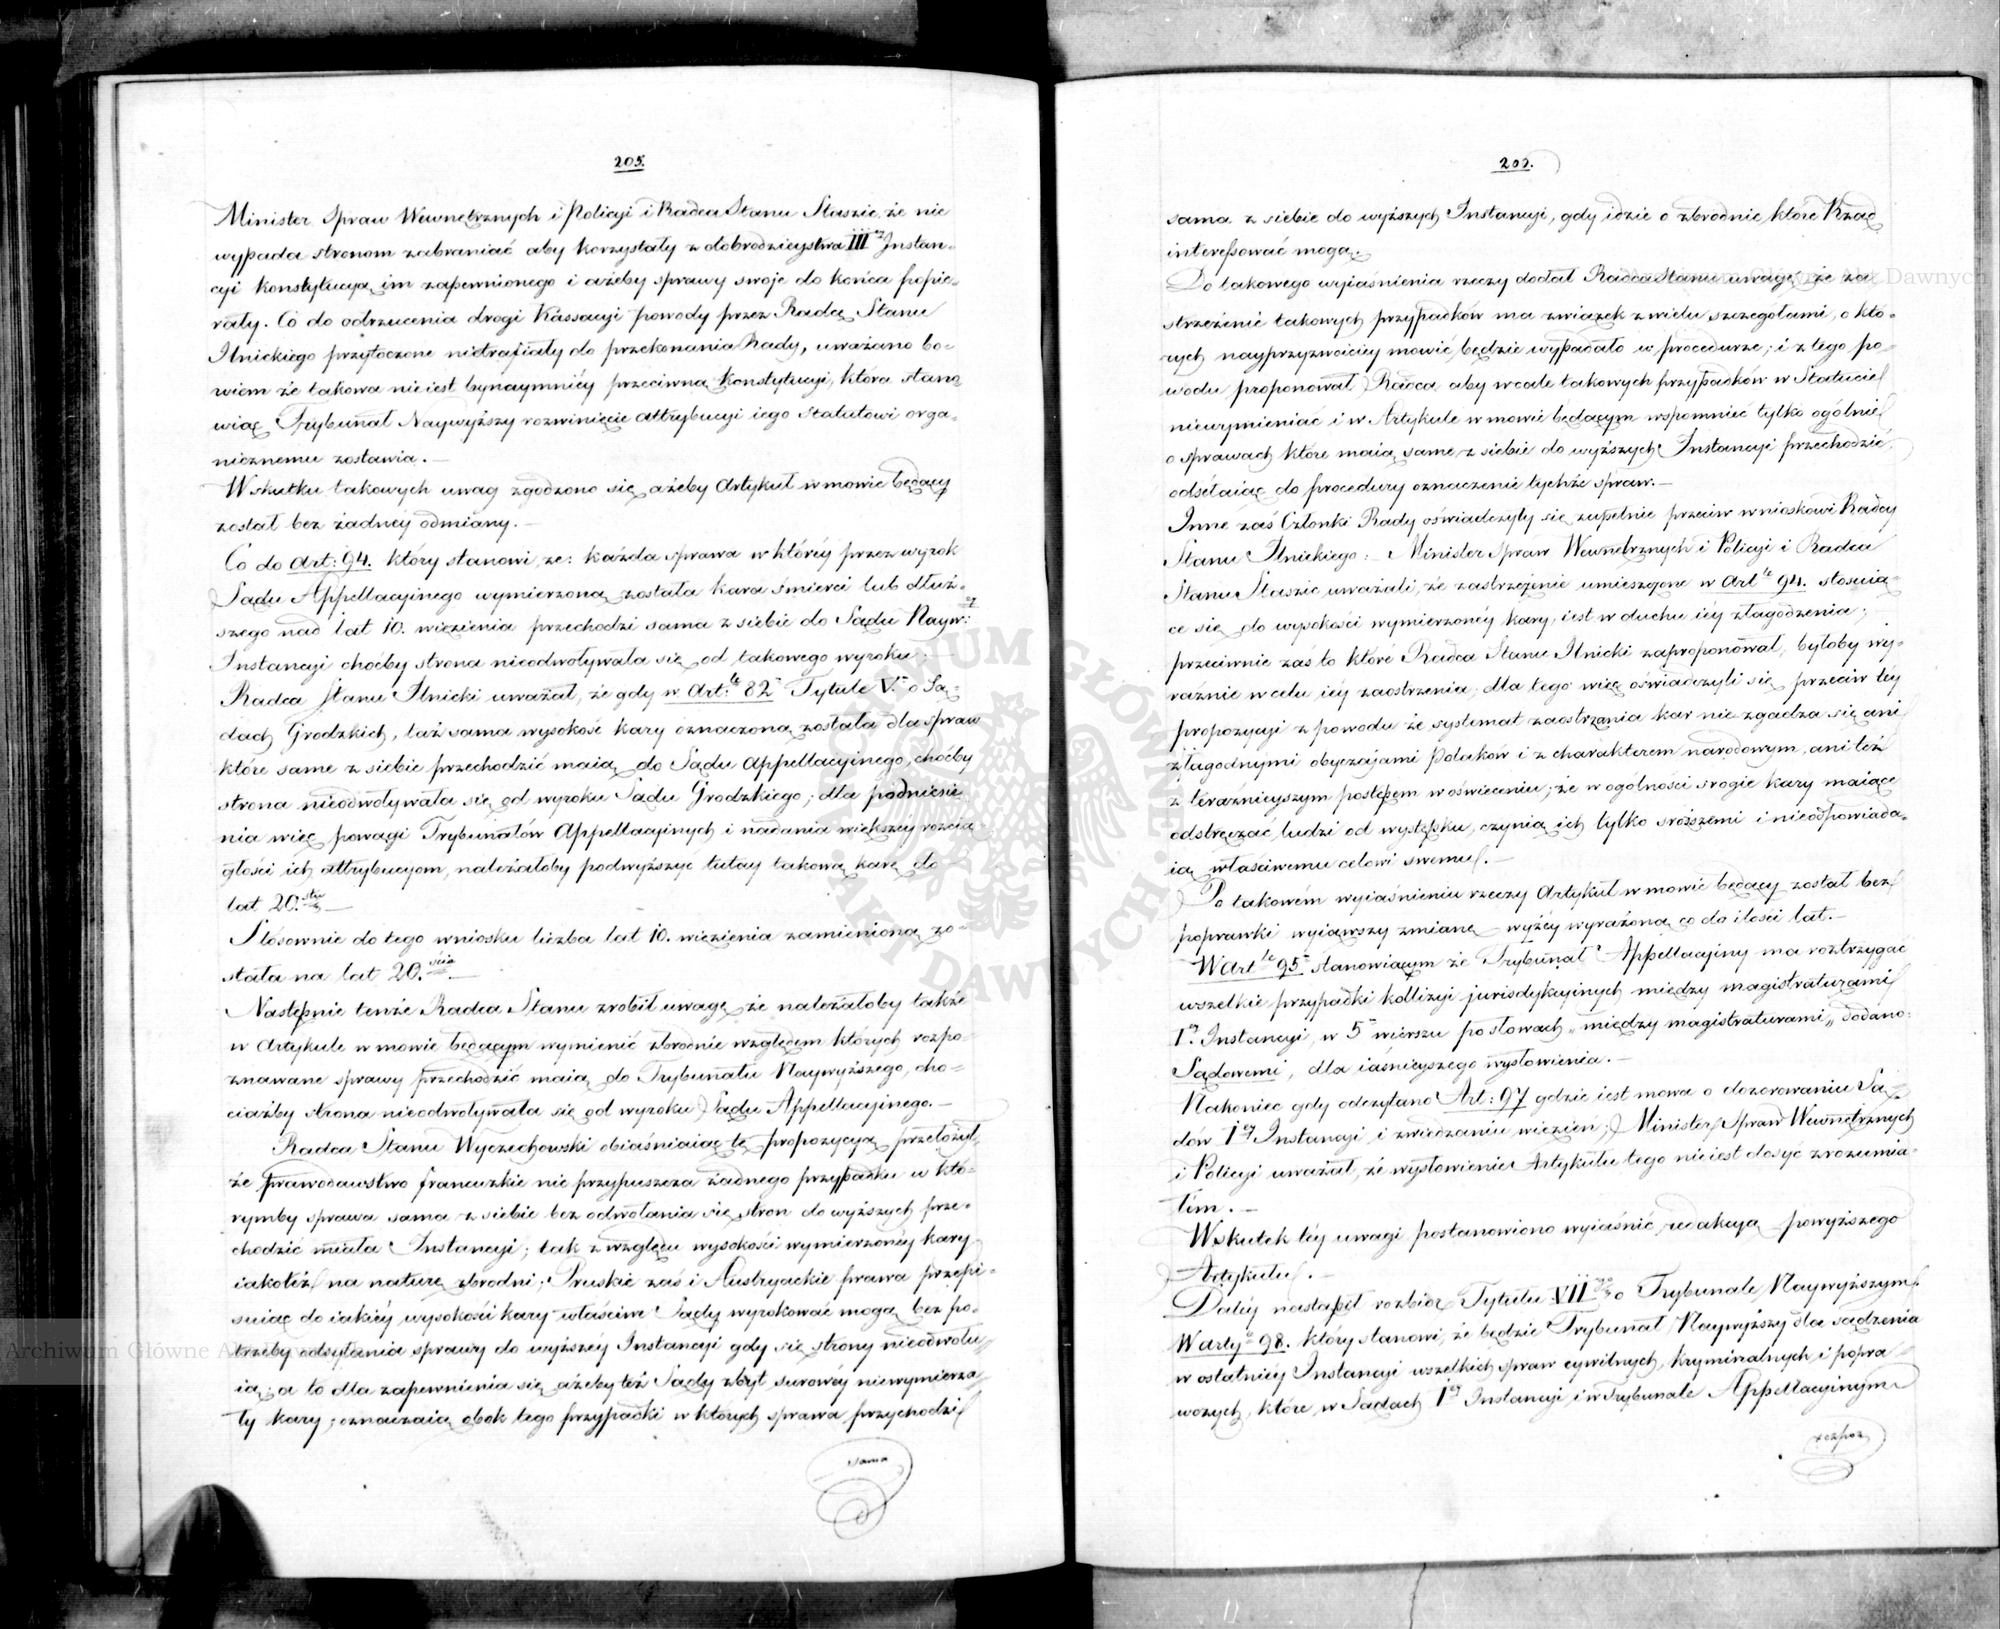 205.
Minister Spraw Wewnętrznych i Policyi i Radca Stanu Staszic, że nie
wypada stronom zabraniać aby korzystały z dobrodzieystwa III Instan-
cyi konstytucyą im zapewnionego i ażeby sprawy swoje do końca popie-
rały. Co do odrzucenia drogi Kassacyi powody przez Radcę Stanu
Ilnickiego przytoczone nietrafiały do przekonania Rady, uważano bo-
wiem że takowa nie iest bynaymniéy przeciwną Konstytucyi, która stano
wiąc Trybunał Naywyższy rozwinięcie attrybucyi iego Statutowi orga-
nicznemu zostawia. —
W skutku takowych uwag zgodzono się ażeby Artykuł w mowie będący
został bez żadnéy odmiany. —
Co do Art: 94. który stanowi, że: każda sprawa w któréy przez wyrok
Sądu Appellacyjnego wymierzoną została kara śmierci lub dłuż-
szego nad lat 10. więzienia przechodzi sama z siebie do Sądu Nayw:
Instancyi choćby strona nieodwoływała się od takowego wyroku; —
Radca Stanu Ilnicki uważał, że gdy w Art: 82 Tytule V. o Są-
dach Grodzkich, taż sama wysokość kary oznaczoną została dla spraw
które same z siebie przechodzić maią do Sądu Appellacyjnego, choćby
strona nieodwoływała się od wyroku Sądu Grodzkiego; dla podniesie
nia więc powagi Trybunałów Appellacyjnych i nadania większéy rozcią-
głości ich attrybucyom, należałoby podwyższyć tutay takową karę do
lat 20.stu —
Stósownie do tego wniosku liczba lat 10. więzienia zamienioną zo-
stała na lat 20.ścia —
Następnie tenże Radca Stanu zrobił uwagę że należałoby także
w Artykule w mowie będącym wymienić zbrodnie względem których rozpo-
znawane sprawy przechodzić maią do Trybunału Naywyższego, cho-
ciażby strona nieodwoływała się od wyroku Sądu Appellacyinego. —
Radca Stanu Wyczechowski obiaśniaiąc tę propozycyą przełożył,
że prawodawstwo francuzkie nie przypuszcza żadnego przypadku w któ-
rymby sprawa sama z siebie bez odwołania się stron do wyższych prze-
chodzić miała Instancyi; tak z względu wysokości wymierzonéy kary
iakotéż na naturę zbrodni; Pruskie zaś i Austryackie prawa przepi-
suiąc do iakiéy wysokości kary właściwe Sądy wyrokować mogą bez po-
trzeby odsyłania sprawy do wyższéy Instancyi gdy się strony nieodwołu-
ią; a to dla zapewnienia się ażeby też Sądy zbyt surowéy niewymierza
ły kary; oznaczaią obok tego przypadki w których sprawa przychodzi
sama
202.
sama z siebie do wyższych Instancyi, gdy idzie o zbrodnie, które Rząd
interessować mogą. —
Do takowego wyiaśnienia rzeczy dodał Radca Stanu uwagę, że za-
strzeżenie takowych przypadków ma związek z wielu szczegołami, o któ-
rych nayprzyzwoiciéy mowić będzie wypadało w procedurze; i z tego po-
wodu proponował Radca aby wcale takowych przypadków w Statucie
niewymieniać i w Artykule w mowie będącym wspomnieć tylko ogólnie
o sprawach które maią same z siebie do wyższych Instancyi przechodzić,
odsełaiąc do procedury oznaczenie tychże spraw. —
Inne zaś Członki Rady oświadczyły się zupełnie przeciw wnioskowi Radcy
Stanu Ilnickiego: — Minister Spraw Wewnętrznych i Policyi i Radca
Stanu Staszic uważali, że zastrzeżenie umieszczone w Art 94. stosuią-
ce się do wysokości wymierzonéy kary, iest w duchu iéy złagodzenia;
przeciwnie zaś to które Radca Stanu Ilnicki zaproponował, byłoby wy-
raźnie w celu iéy zaostrzenia; dla tego więc oświadczyli się przeciw téy
propozycyi z powodu że systemat zaostrzania kar nie zgadza się ani
z łagodnymi obyczajami Polaków i z charakterem narodowym, ani też
z teraźnieyszym postępem w oświeceniu; że w ogólności srogie kary maiące
odstręczać ludzi od występku, czynią ich tylko sroższemi i nieodpowiada-
ią właściwemu celowi swemu. —
Po takowém wyiaśnieniu rzeczy Artykuł w mowie będący został bez
poprawki wyiąwszy zmianę wyżéy wyrażoną co do ilości lat. —
W Art 95 stanowiącym że Trybunał Appellacyiny ma roztrzygać
wszelkie przypadki kollizyi jurisdykcyinych między magistraturami
I. Instancyi, w 5 wierszu po słowach „między magistraturami„ dodano:
Sądowemi, dla iaśnieyszego wysłowienia. —
Nakoniec gdy odczytano Art: 97 gdzie iest mowa o dozorowaniu Są-
dów I Instancyi i zwiedzaniu więzień; Minister Spraw Wewnętrznych
i Policyi uważał, że wysłowienie Artykułu tego nie iest dosyć zrozumia-
łem. —
W skutek téy uwagi postanowiono wyiaśnić redakcyą powyższego
Artykułu. —
Daléy nastąpił rozbiór Tytułu VII o Trybunale Naywyższym.
W arty 98. który stanowi, że będzie Trybunał Naywyższy dla sądzenia
w ostatniéy Instancyi wszelkich spraw cywilnych, kryminalnych i popra
wczych, które w Sądach I Instancyi i w Trybunale Appellacyinym
rozpoz
Archiwum Główne Akt Dawnych
ARCHIWUM GŁÓWNE AKT DAWNYCH